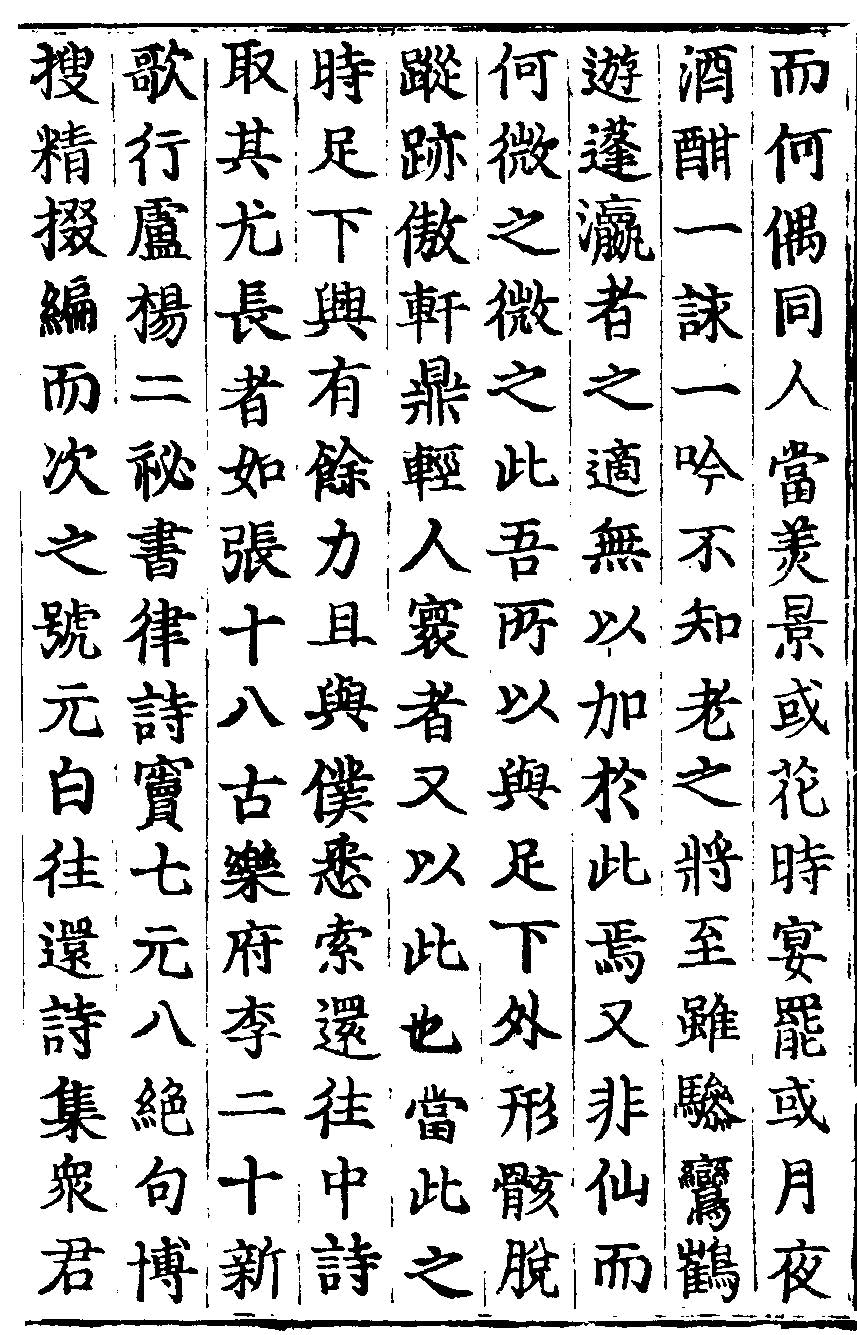 而何偶同人當美景或花時宴罷或月夜
酒酣一詠一吟不知老之將至雖驂鸞鶴
遊蓬瀛者之適無以加於此焉又非仙而
何微之微之此吾所以與足下外形骸脫
蹤跡傲軒鼎輕人寰者又以此也當此之
時足下興有餘力且與僕悉索還往中詩
取其尤長者如張十八古樂府李二十新
歌行盧楊二祕書律詩竇七元八絕句博
搜精掇編而次之號元白往還詩集衆君